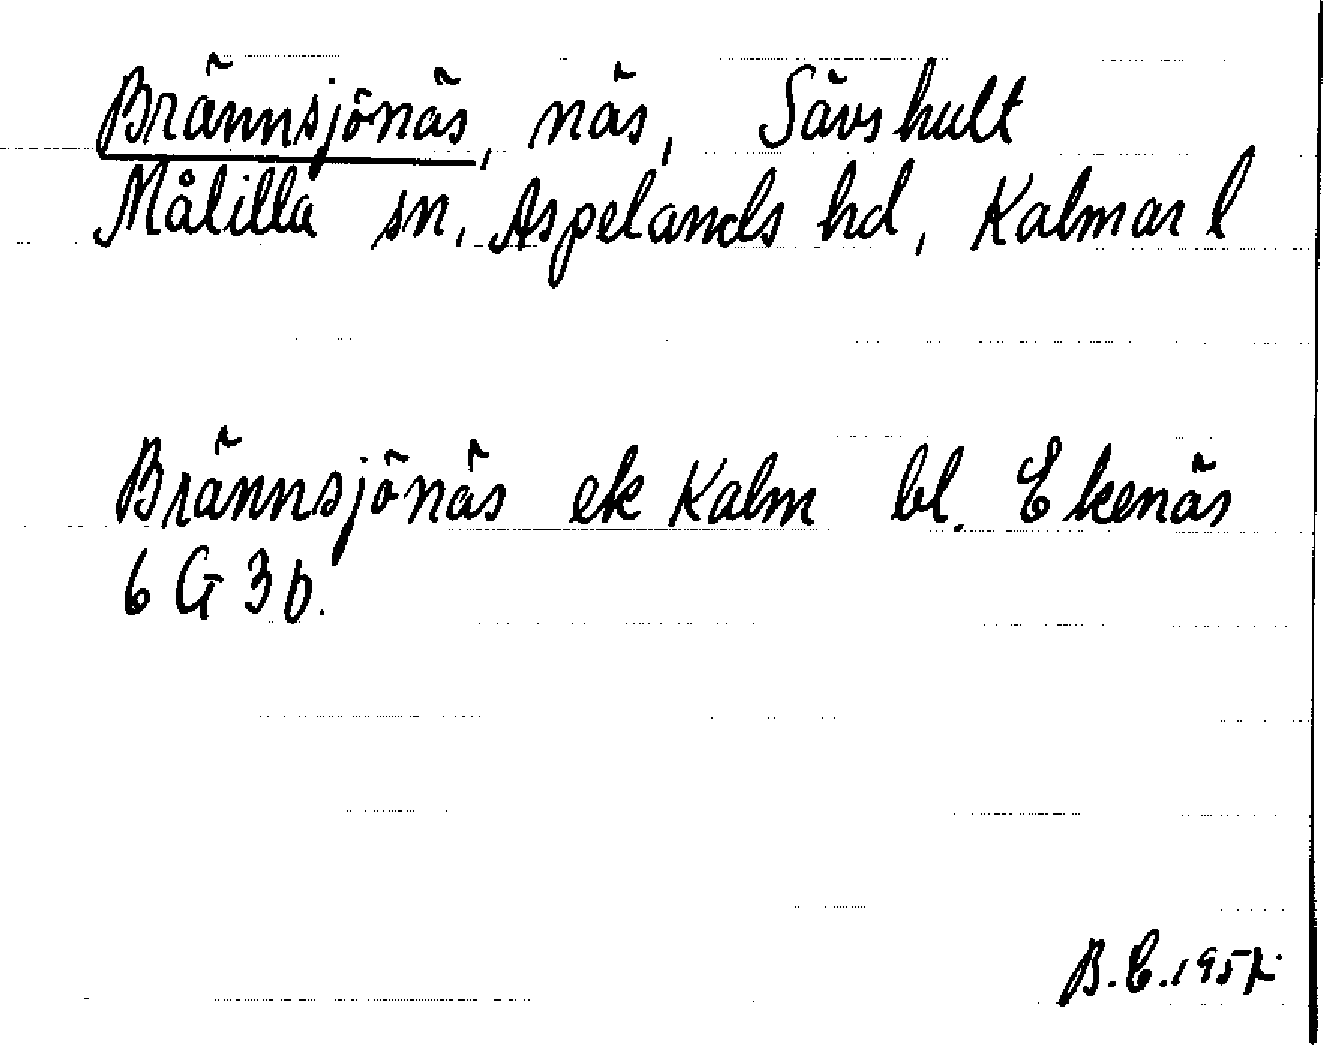 Brännsjönäs, näs, Sävshult
Målilla sn, Aspelands hd, Kalmar l
Brännsjönäs ek Kalm bl. Ekenäs
6 G 3 b.
B.E.1957.